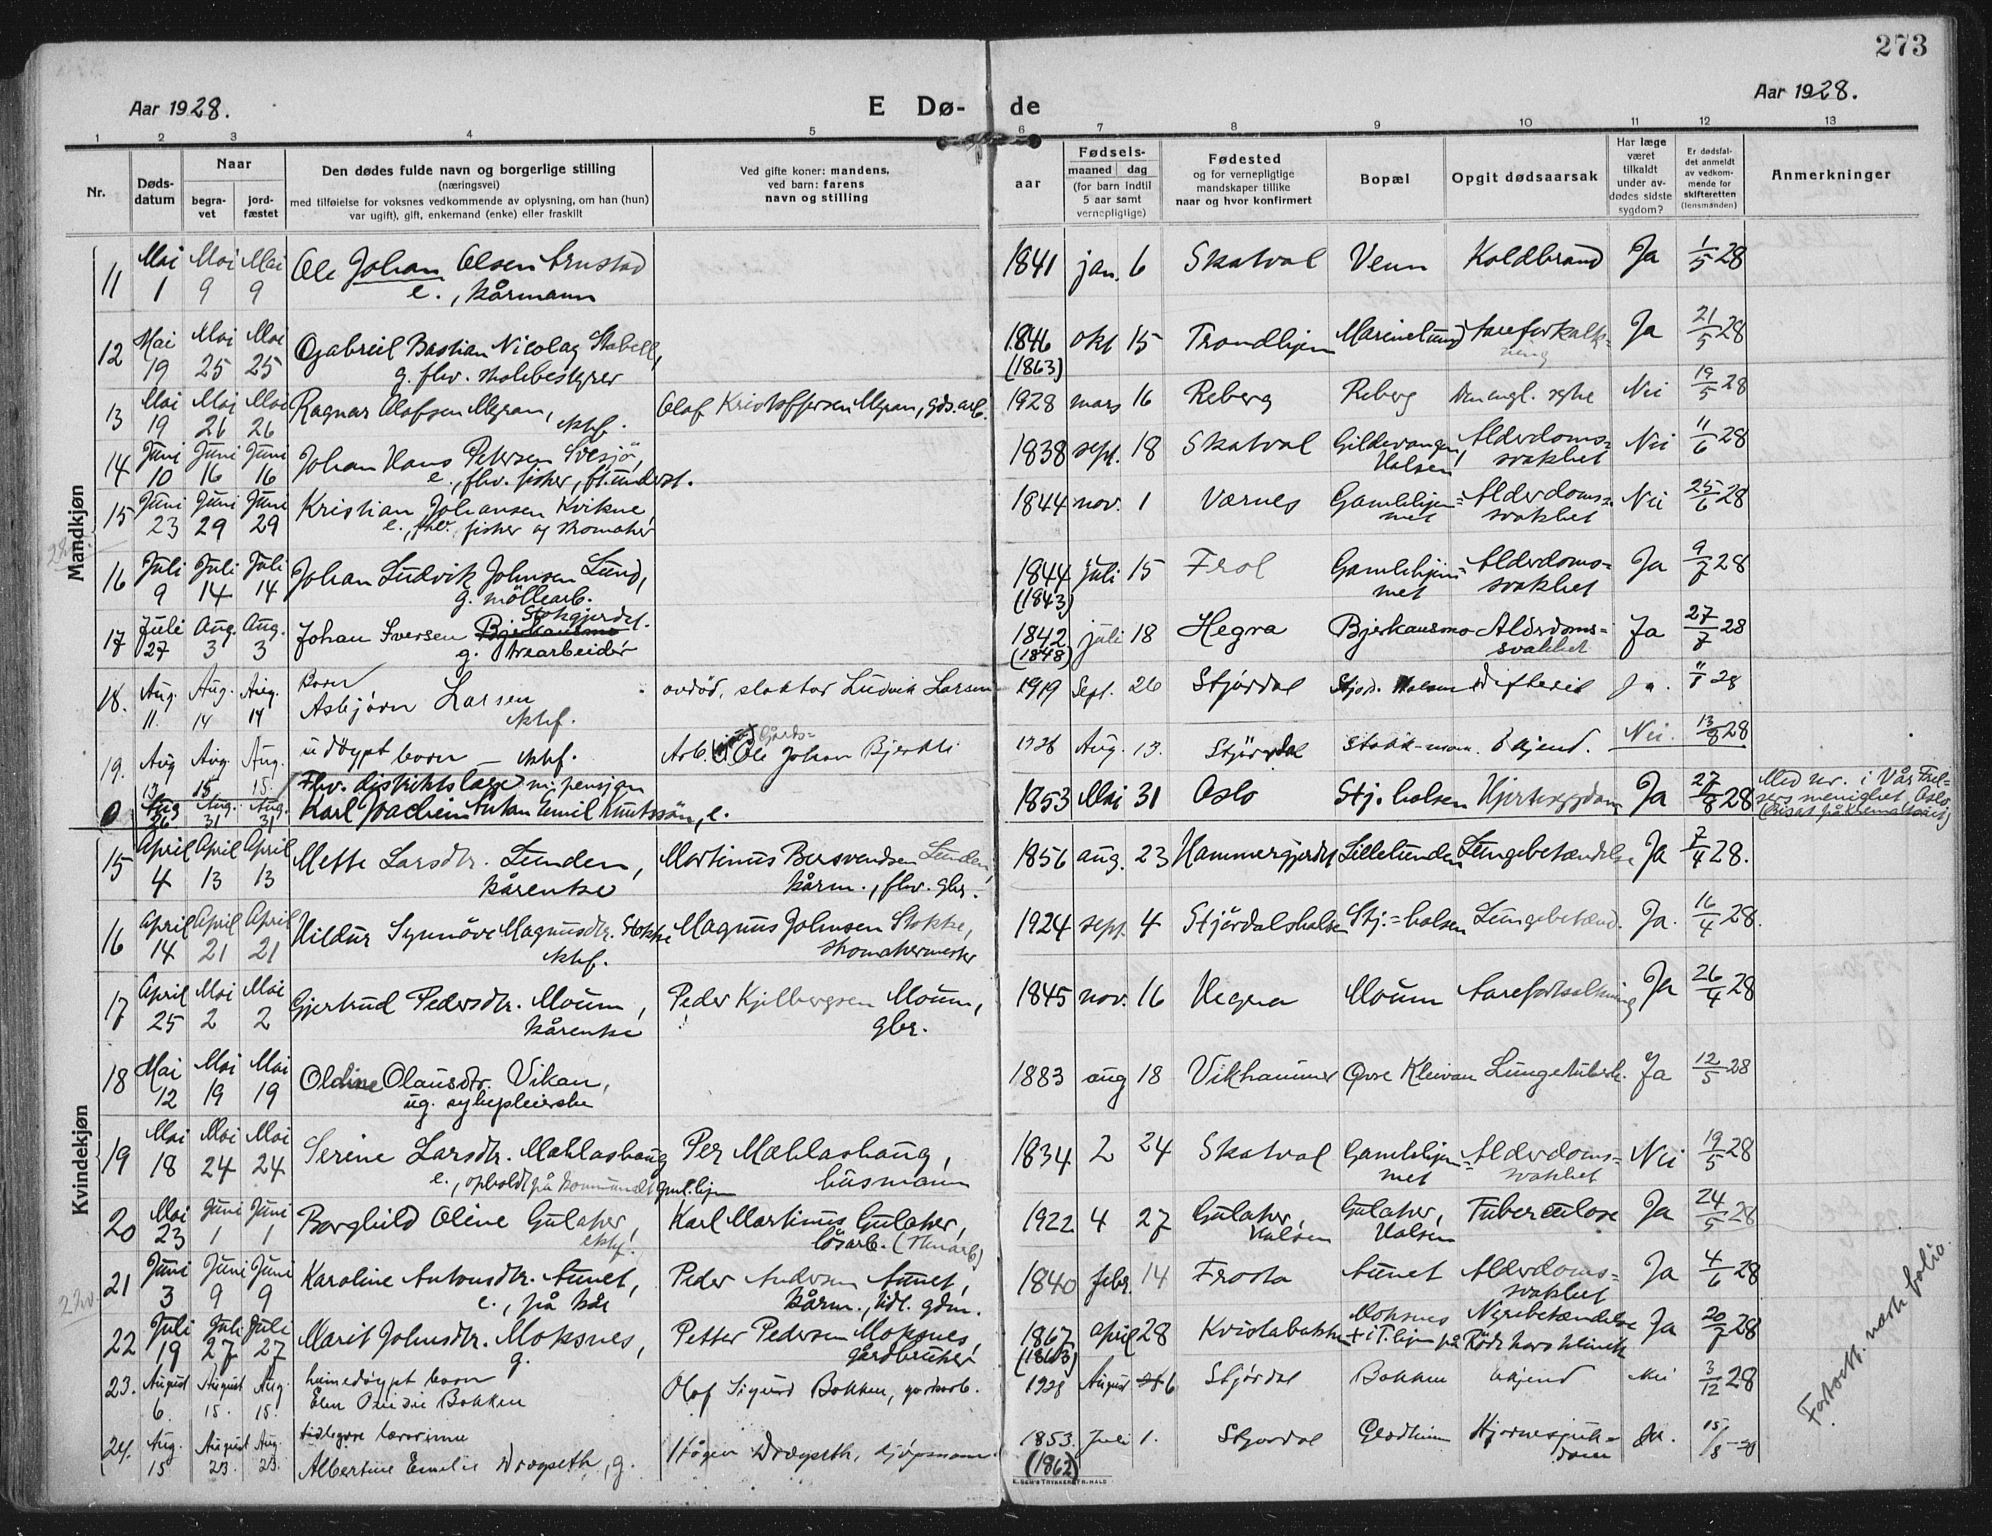 273
Aar 1928.
E Dø-
de
Aar 1928.
1 2 3 4 5 6 7 8 9 10 11 12 13
Nr.
Døds-
datum
Naar
begra-
vet
jord-
fæstet
Den dødes fulde navn og borgerlige stilling
(næringsvei)
med tilføielse for voksnes vedkommende av oplysning, om han (hun)
var ugift), gift, enkemand (enke) eller fraskilt
Ved gifte koner: mandens,
ved barn: farens
navn og stilling
Fødsels-
aar
maaned dag
(for barn indtil
5 aar samt
vernepligtige)
Fødested
og for vernepligtige
mandskaper tillike
naar og hvor konfirmert
Bopæl
Opgit dødsaarsak
Har læge
været
tilkaldt
under av-
dødes sidste
sygdom?
Er dødsfal-
det anmeldt
av vedkom-
mende for
skifteretten
(lensmanden)
Anmerkninger
Mandkjøn
11 Mai 1 Mai 9 Mai 9 Ole Johan Olsen Arnstad
e., kårmann
1841 jan. 6 Skatval Venn Koldbrand Ja 1/5 28
12 Mai 19 Mai 25 Mai 25 Gabriel Bastian Nicolay Stabell,
g. fhv. skolebestyrer
1846 (1863) okt 15 Trondhjem Marinelund Aareforkalk=
ning Ja 21/5 28
13 Mai 19 Mai 26 Mai 26 Ragnar Olofsen Myran, Olaf Kristoffersen Myran, gds.arb.
1928 mars 16 Reberg Reberg Den engl. syke Nei 19/5 28
14 Juni 10 Juni 16 Juni 16 Johan Hans Petersen Svesjø,
e., fhv. fisker, ft.underst.
1838 sept. 18 Skatval Gildevangen, Halsen Alderdoms=
svakhet Nei 11/6 28
15 Juni 23 Juni 29 Juni 29 Kristian Johansen Kvikne,
e., fhv. fisker og skomaker
1844 nov. 1 Værnes Gamlehjem=
met Alderdoms=
svakhet Nei 25/6 28
16 Juli 9 Juli 14 Juli 14 Johan Ludvik Johnsen Lund,
g. møllearb.
1844 (1843) juli 15 Frol Gamlehjem=
met Alderdoms=
svakhet Ja 9/7 28
17 Juli 27 Aug. 3 Aug. 3 Johan Iversen Bjerkansmo Stokgjerdet.
g. træarbeider
1842 (1848) juli 18 Hegra Bjerkansmo Alderdoms=
svakhet Ja 27/7 28
18. Aug. 11. Aug. 14 Aug. 14 Barn
Asbjørn Larsen
avdød, slakter Ludvik Larsen
1919 Sept. 26 Stjørdal Stjørd. Halsen Difterit Ja. 11/8 28
19. Aug 13 Aug. 15 Aug. 15. udøypt barn
Arb. Gårds= Ole Johan Bjerkli
1928 Aug. 13. Stjørdal Ukjend. Nei. 13/8 28
0 Aug 26 Aug. 31 Aug. 31 Fhv. distriktslæge m. pensjon
Karl Joachim Anton Emil Knutssøn, e.
1853 Mai 31 Oslo Stj. halsen Hjertesygdom Ja 27/8 28 Med nr. i Vår Frel-
sers menighet, Oslo,
(Bisat på krematoriet)
Kvindekjøn
15 April 4 April 13 April 13 Mette Larsdtr. Lunden,
kårenke
Martinus Bersvendsen Lunden,
kårm., fhv. gbr.
1856 aug. 23 Hammergjerdet Lillelunden Lungebetændelse Ja 7/4 28.
16 April 14 April 21 April 21 Hildur Synnøve Magnusdtr. Stokke
Magnus Johnsen Stokke,
skomakermester
1924 sept. 4 Stjørdalshalsen Stj.=halsen Lungebetænd. Ja. 16/4 28.
17 April 25 Mai 2 Mai 2 Gjertrud Pedersdtr. Moum,
kårenke
Peder Kjelbergsen Moum,
gbr.
1845 nov. 16 Hegra Moum Aareforkalkning Ja 26/4 28
18 Mai 12 Mai 19 Mai 19 Oldine Olausdtr. Vikan,
ug. sykepleierske
1883 aug 18 Vikhammer Øvre Kleivan Lungetuberk. Ja 12/5 28
19 Mai 18 Mai 24 Mai 24 Serine Larsdtr. Mæhlashaug
e., opholdt på kommunalt gml.hjem
Per Mæhlashaug,
husmann
1834 2 24 Skatval Gamlehjem=
met Alderdoms=
svakhet Nei 19/5 28
20 Mai 23 Juni 1 Juni 1 Borghild Oline Gulaker,
Karl Martinus Gulaker,
løsarb.
1922 4 27 Gulaker, Halsen Gulaker, Halsen Tuberculose Ja 24/5 28
21 Juni 3 Juni 9 Juni 9 Karoline Antonsdtr. Aunet,
e., på kår
Peder Andersen Aunet,
kårm., tidl. gdm.
1840 febr. 14 Frosta Aunet Alderdoms=
svakhet Ja 4/6 28
22 Juli 19 Juli 27 Juli 27 Marit Johnsdtr. Moksnes,
g.
Petter Pedersen Moksnes,
gårdbruker
1867 (1863) april 28 Kvislabakken Moksnes
+ i T.hjem på Nyrebetændelse
Røde kors klinik Ja 20/7 28
23. August 6. August 15. Aug. 15. hjemedøypt barn
Bakken
Olof Sigurd Bakken, gardarb.
1928 August 6 Stjørdal Bakken Ukjend Nei 3/12 28
24. Aug. 15 August 23. Aug. 23. tidlegere lærerinne
Albertine Emelie Drægseth, g.
Hågen Drægseth, kjøpmann
1853. (1862) Juli 1. Stjørdal Hjertesjuk=
dom Ja. 15/8 28
Fortsett. næste folio.
E. SEM'S TRYKKERI, FR.HALD